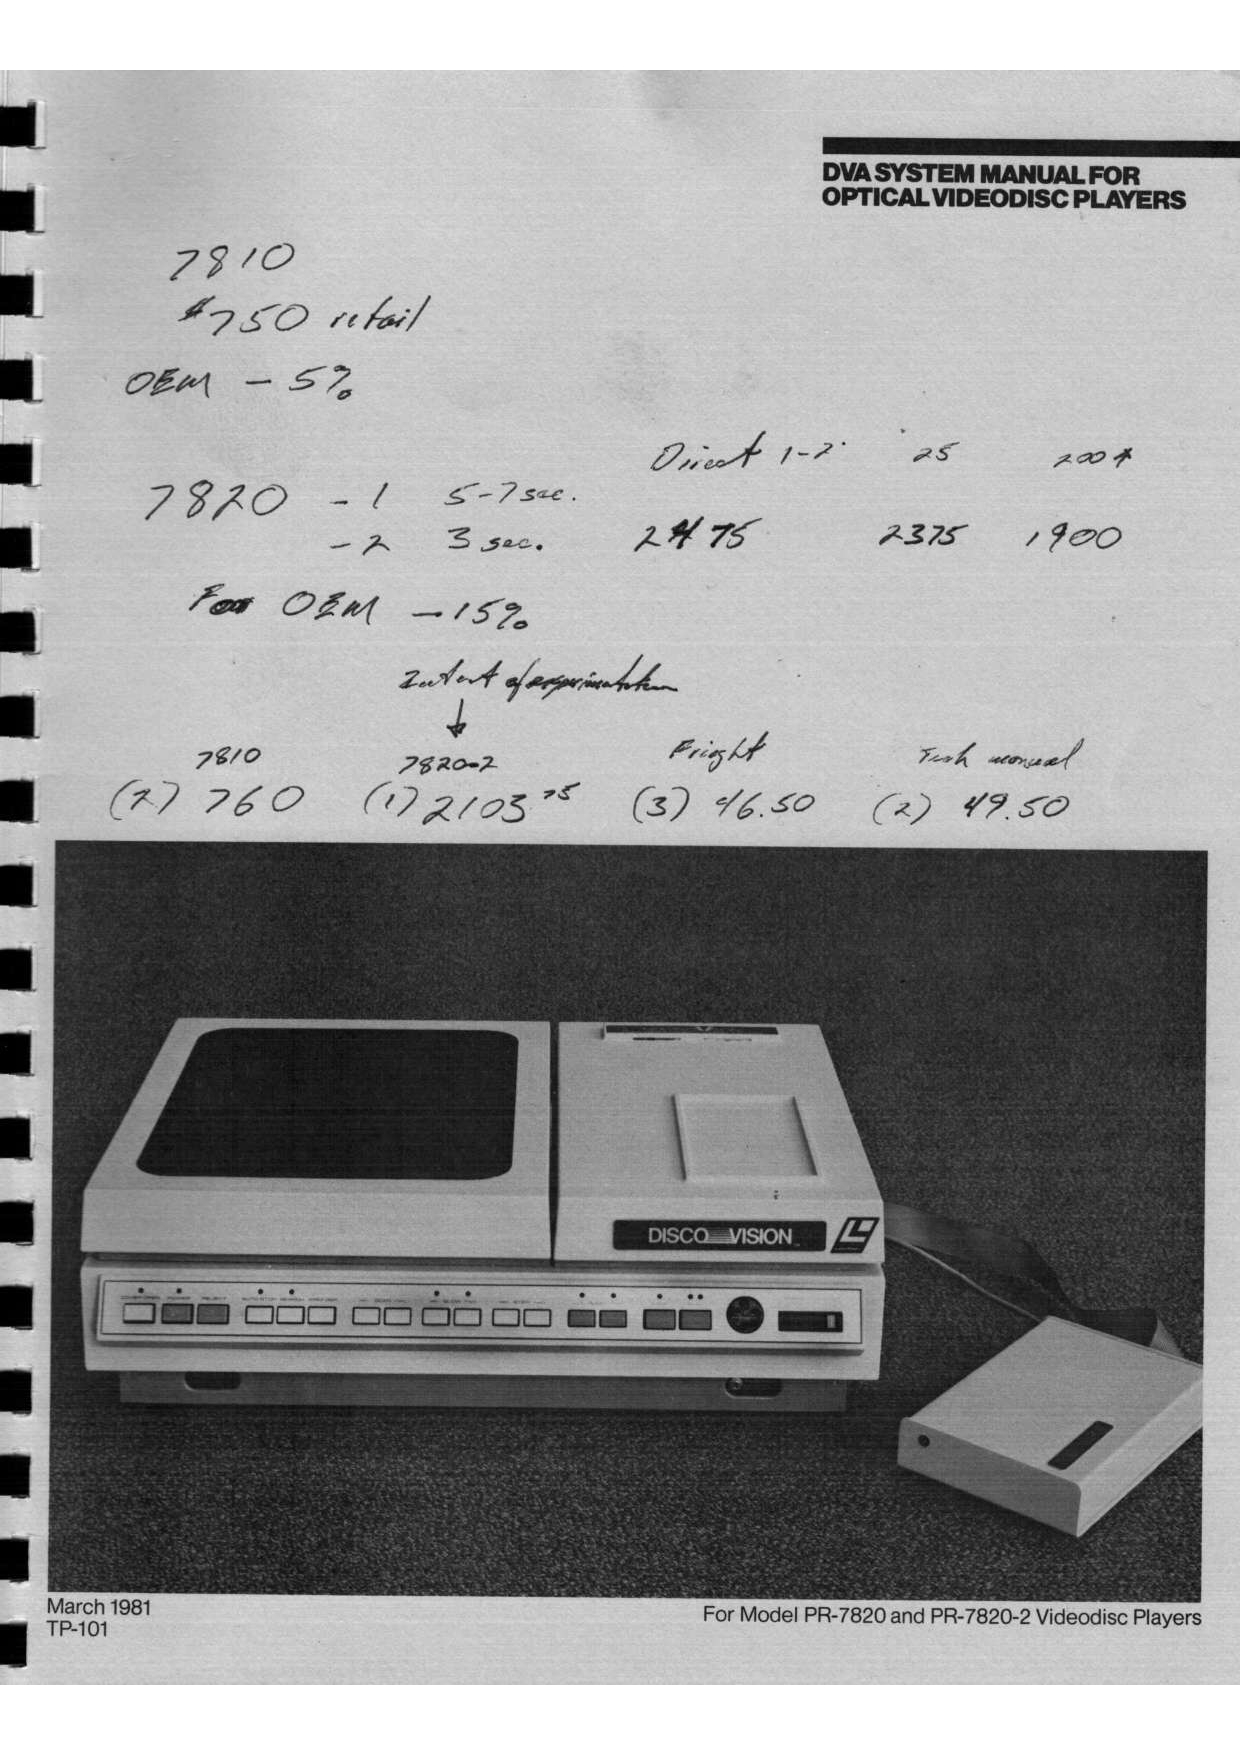 DVA SYSTEM MANUAL FOR
OPTICAL VIDEODISC PLAYERS
7810
$750 retail
OEM - 5%
Direct 1-2 25 200+
7820 -1 5-7 sec.
-2 3 sec. 2475 2375 1900
For OEM - 15%
Intent of experimentation
7810 7820-2 Frieght Tech manual
(2) 760 (1) 2103.75 (3) 46.50 (2) 49.50
DISCO VISION
March 1981
TP-101
For Model PR-7820 and PR-7820-2 Videodisc Players